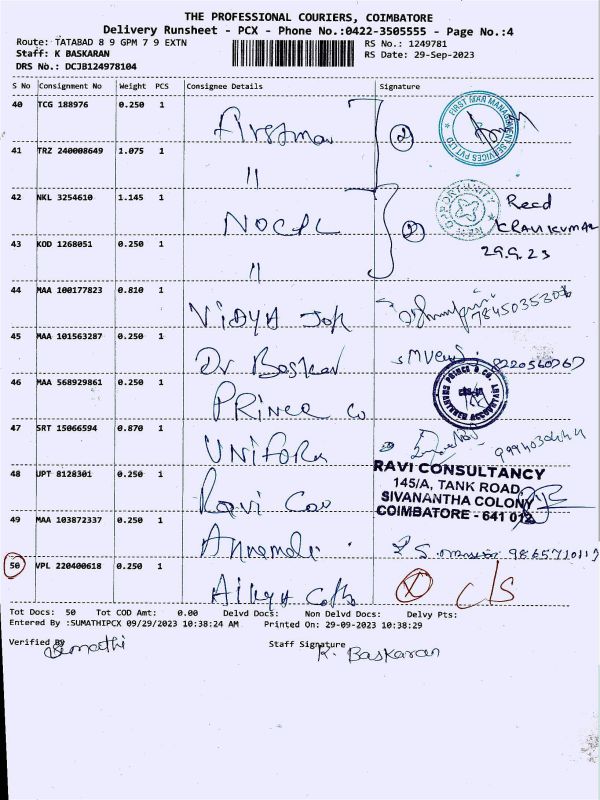 THE PROFESSIONAL COURIERS, COIMBATORE
Delivery Runsheet - PCX - Phone No.:0422-3505555 - Page No.:4
Route: TATABAD 8 9 GPM 7 9 EXTN RS No.: 1249781
Staff: K BASKARAN RS Date: 29-Sep-2023
DRS No.: DCJB124978104
S No Consignment No Weight PCS Consignee Details Signature
40 TCG 188976 0.250 1 Firstman 2
FIRST MAN MANAGEMENT SERVICES PVT LTD
41 TRZ 240008649 1.075 1 "
42 NKL 3254610 1.145 1 NOCPL 2
OPPORTUNITY
Recd
K RAVI KUMAR
29.9.23
43 KOD 1268051 0.250 1 "
44 MAA 100177823 0.810 1 VIDYA Job
45 MAA 101563287 0.250 1 Dr Baskar 8220560767
46 MAA 568929861 0.250 1 PRince Co
PRINCE & CO. CHARTERED ACCOUNTANT
47 SRT 15066594 0.870 1 UNIFORM
48 UPT 8128301 0.250 1 Ravi Con
RAVI CONSULTANCY
145/A, TANK ROAD,
SIVANANTHA COLONY
COIMBATORE - 641 012
49 MAA 103872337 0.250 1 Annamalai
50 VPL 220400618 0.250 1 X C/S
Tot Docs: 50 Tot COD Amt: 0.00 Delvd Docs: Non Delvd Docs: Delvy Pts:
Entered By :SUMATHIPCX 09/29/2023 10:38:24 AM Printed On: 29-09-2023 10:38:29
Verified By Staff Signature
Sumathi K. Baskaran